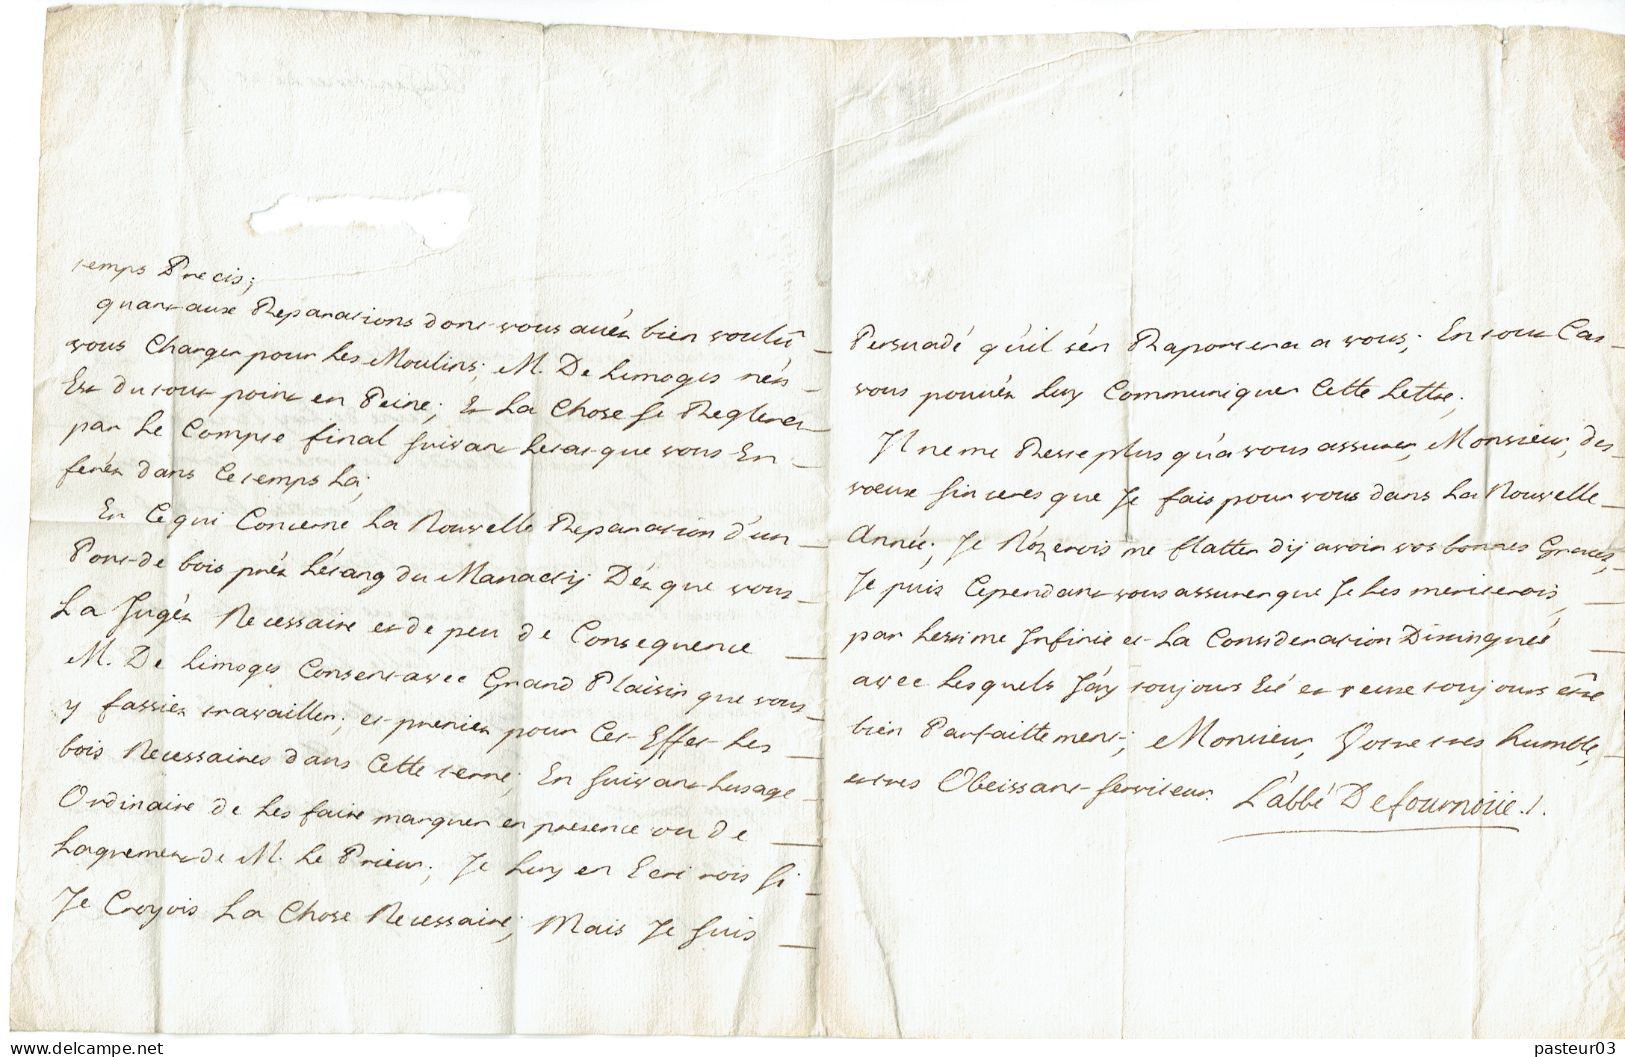 temps Precis;
quant aux Reparations dont vous avéz bien voulû
vous Charger pour Les Moulins; M. De Limoges n'én
Est du tout point en Peine; Et La Chose se Reglera
par Le Compte final suivant Letat que vous En
feréz dans Ce temps La;
En Ce qui Concerne La Nouvelle Reparation d'un
Pont de bois préz Létang du Manactij Déz que vous
La Jugéz Necessaire et de peu de Consequence
M. De Limoges Consent avec Grand Plaisir que vous
y fassiez travailler; et preniez pour Cet Effet Les
bois Necessaires dans Cette terre; En suivant Lusage
Ordinaire de Les faire marquer en presence ou de
Lagrement de M. Le Prieur; Je Luy en Ecrirois si
Je Croyois La Chose Necessaire; Mais Je suis
Persuadé qu'il s'én Raportera a vous; En tout Cas
vous pouvéz Luy Communiquer Cette Lettre;
Il ne me Reste plus qu'a vous assurer, Monsieur, des
voeux sinceres que Je fais pour vous dans La Nouvelle
Année; Je N'ozerois me flatter d'ij avoir vos bonnes Graces,
Je puis Cependant vous assurer que Je Les meriterois,
par Lestime Infinie et La Consideration Distinguée
avec Lesquels J'áy toujours Eté et veux toujours être
bien Parfaittement; Monsieur, Votre tres humble,
et tres Obeissant serviteur. L'abbé Defournoüe ./.
pasteur03
www.delcampe.net